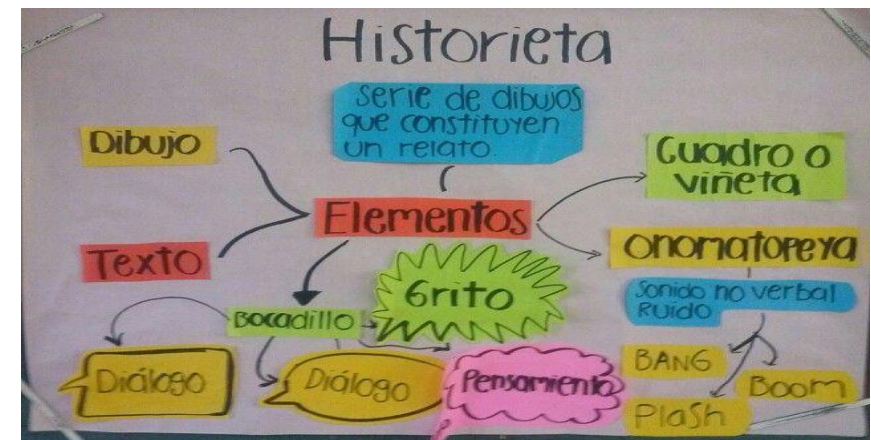 Historieta
serie de dibujos
que constituyen
un relato.
Dibujo
Texto
Elementos
Cuadro o
viñeta
Onomatopeya
Sonido no verbal
Ruido
BANG
Boom
Plash
Bocadillo
Grito
Diálogo
Diálogo
Pensamiento